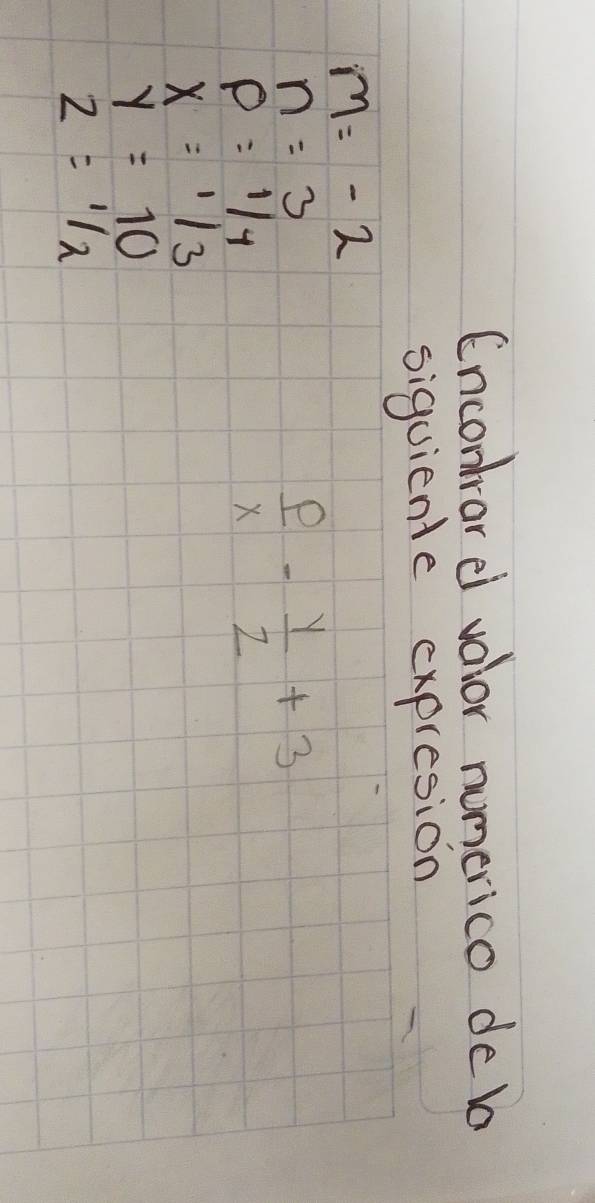 Encontrar el valor numérico de la
siguiente expresión
m = -2
n = 3
p = 1/4
x = 1/3
y = 10
z = 1/2
p/x - y/z + 3